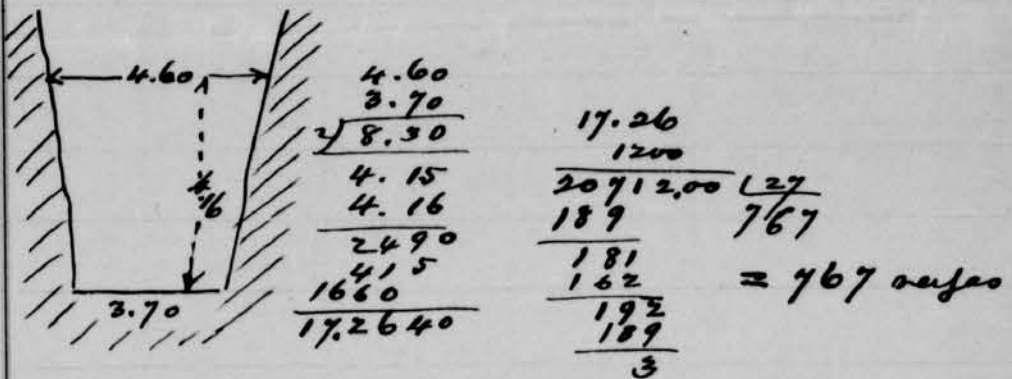 4.60
4.16
3.70
4.60
3.70
2) 8.30
4.15
4.16
2490
415
1660
17.2640
17.26
1200
20712,00 | 27
767
189
181
162
192
189
3
= 767